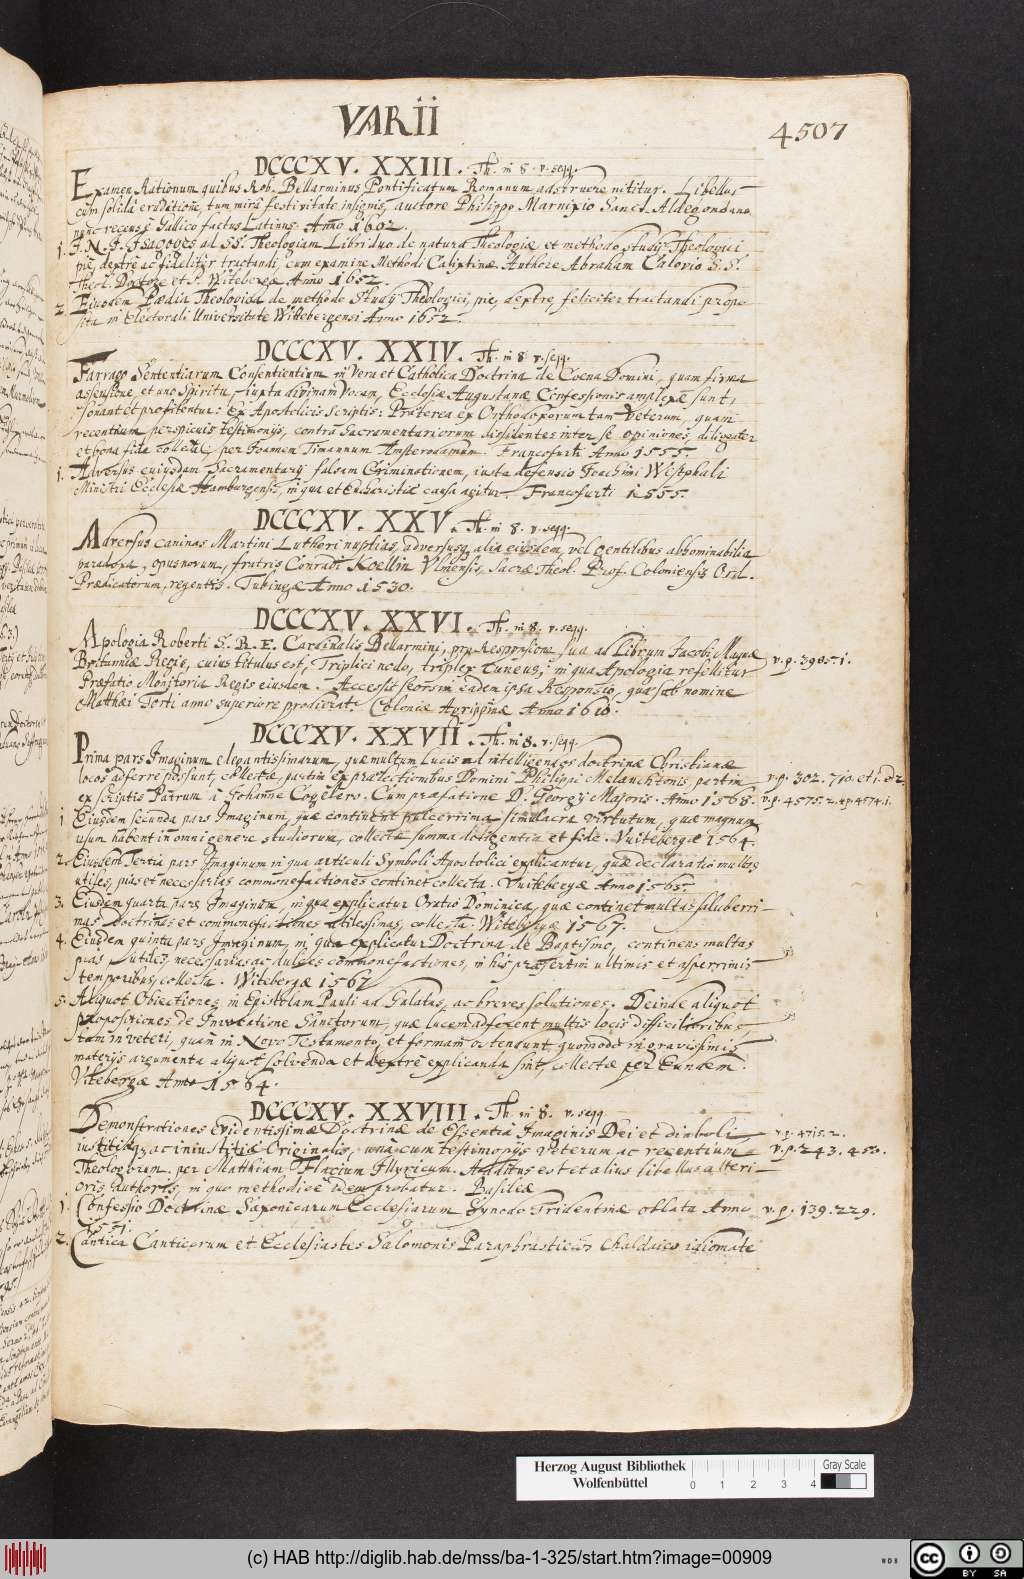 VARII
4507
DCCCXV. XXIII. Th. in 8. v. seqq.
Examen Rationum quibus Rob. Bellarminus Pontificatum Romanum adstruere nititur. Libellus
cum solida eruditione, tum mira festivitate insignis, auctore Philippo Marnixio Sanct. Aldegondano
nunc recens è Gallico factus Latinus. Anno 1602.
1. I. N. I. Isagoges ad SS. Theologiam Libri duo de natura Theologiæ et methodo Study Theologici
pie, dextre ac fideliter tractandi, cum examine Methodi Calixtinæ. Authore Abraham Calovio S. S.
Theol. Doctore et P. Witebergæ Anno 1652.
2. Eiusdem Pædia Theologica de methodo Study Theologici, pie, dextre, feliciter tractandi propo-
sita in Electorali Universitate Wittebergensi Anno 1652.
DCCCXV. XXIV. Th. in 8. v. seqq.
Farrago Sententiarum Consentientium in Vera et Catholica Doctrina de Coena Domini, quam firma
assensione, et uno Spiritu, iuxta divinam vocem, Ecclesiæ Augustanæ Confessionis amplexæ sunt,
sonant et profitentur: Ex Apostolicis scriptis: Præterea ex Orthodoxorum tam Veterum, quam
recentium perspicuis testimonijs, contra Sacramentariorum dissidentes inter se opiniones, diligenter
et bona fide collecta, per Joannem Timannum Amsterodamum. Francofurti Anno 1555.
1. Adversus cuiusdam Sacramentarij falsam Criminationem, iusta defensio Joachimi Westphali
Ministri Ecclesiæ Hamburgensis, in qua et Eucharistiæ causa agitur. Francofurti 1555.
DCCCXV. XXV. Th. in 8. v. seqq.
Adversus caninas Martini Lutheri nuptias, adversusq alia eiusdem, vel gentilibus abhominabilia
paradoxa, opus novum, fratris Conradi Koellin Vlmensis, Sacræ Theol. Prof. Coloniensis Ord.
Prædicatorum, regentis. Tubingæ Anno 1530.
DCCCXV. XXVI. Th. in 8. v. seqq.
Apologia Roberti S. R. E. Cardinalis Bellarmini, pro Responsione sua ad Librum Jacobi Magnæ
Britanniæ Regis, cuius titulus est, Triplici nodo, triplex cuneus, in qua Apologia refellitur
v. p. 3985. 1.
Præfatio Monitoria Regis eiusdem. Accessit seorsim eadem ipsa Responsio, quæ sub nomine
Matthæi Torti anno superiore prodierat. Coloniæ Agrippinæ Anno 1610.
DCCCXV. XXVII. Th. in 8. v. seqq.
Prima pars Imaginum elegantissimarum, quæ multum Lucis ad intelligendos doctrinæ Christianæ
locos adferre possunt, Collectæ, partim ex prælectionibus Domini Philippi Melanchtonis, partim
v. p. 302. 710. et
ex scriptis Patrum à Johanne Cogelero. Cum præfatione D. Georgij Majoris. Anno 1568.
v. p. 4575. 2. v. p. 4574. 1.
1. Eiusdem secunda pars Imaginum, quæ continent pulcerrima simulacra virtutum, quæ magnum
usum habent in omni genere studiorum, collectæ summa diligentia et fide. Vuitebergæ 1564.
2. Eiusdem Tertia pars Imaginum in qua articuli Symboli Apostolici explicantur, quæ declaratio multas
utiles, pias et necessarias commonefactiones continet collecta. Vuitebergæ Anno 1565.
3. Eiusdem quarta pars Imaginum, in qua explicatur Oratio Dominica, quæ continet multas saluberri-
mas doctrinas et commonefactiones utilissimas, collecta. Witebergæ 1567.
4. Eiusdem quinta pars Imaginum, in qua explicatur Doctrina de Baptismo, continens multas
pias, utiles, necessarias ac dulces commonefactiones, in his præsertim ultimis et asperrimis
temporibus, collecta. Witebergæ 1567
5. Aliquot Obiectiones in Epistolam Pauli ad Galatas, ac breves solutiones. Deinde aliquot
propositiones de Invocatione Sanctorum, quæ lucem adferent multis locis difficilioribus
tam in veteri, quam in Novo Testamento, et formam ostendunt quomodo in gravissimis
materijs argumenta aliquot solvenda et dextrè explicanda sint, collectæ per Eundem.
Vitebergæ Anno 1564.
DCCCXV. XXVIII. Th. in 8. v. seqq.
Demonstrationes Evidentissimæ Doctrinæ de Essentia Imaginis Dei et diaboli
v. p. 4715. 2.
iustitiæq, ac iniustitiæ Originalis, unà cum testimonijs veterum ac recentium
v. p. 243. 453.
Theologorum, per Matthiam Flacium Illyricum. Additus est et alius libellus alteri-
oris, authoris, in quo methodice idem probatur. Basileæ
1. Confessio Doctrinæ Saxonicarum Ecclesiarum Synodo Tridentinæ oblata Anno
v. p. 139. 229.
1551.
2. Cantica Canticorum et Ecclesiastes Salomonis Paraphrasticωs Chaldaico idiomate
Herzog August Bibliothek
Wolfenbüttel
0 1 2 3 4
Gray Scale
(c) HAB http://diglib.hab.de/mss/ba-1-325/start.htm?image=00909
WDB
cc BY SA